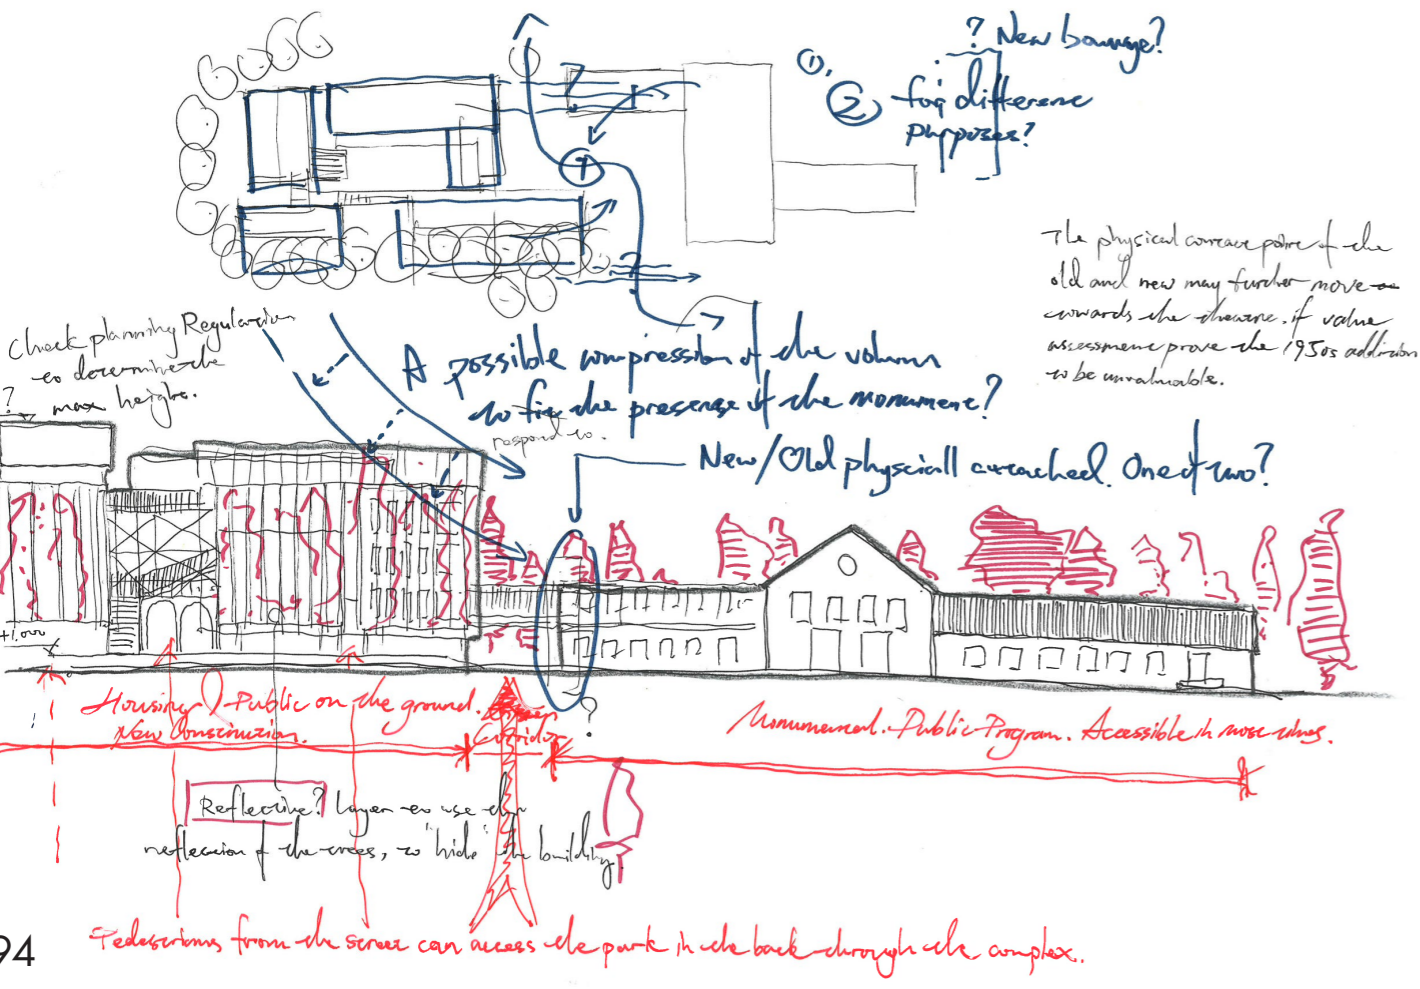 ? New bounge?
①,
② foq difference
purposes?
①
?
?
The physical contact point of the
old and new may further move
towards the theatre, if value
assessment prove the 1950s addition
to be unvaluable.
Check planning Regulation
to determine the
? max height.
A possible compression of the volum
to fig the presense of the monument?
respond to.
New/Old physciall attached. One of two?
+1.000
Housing
Public on the ground.
New Construction.
Corridor
?
Monument. Public-Program. Accessible in most times.
Reflective? Layer to use the
reflection of the trees, to "hide" the building.
Pedestrians from the street can access the park in the back through the complex.
94